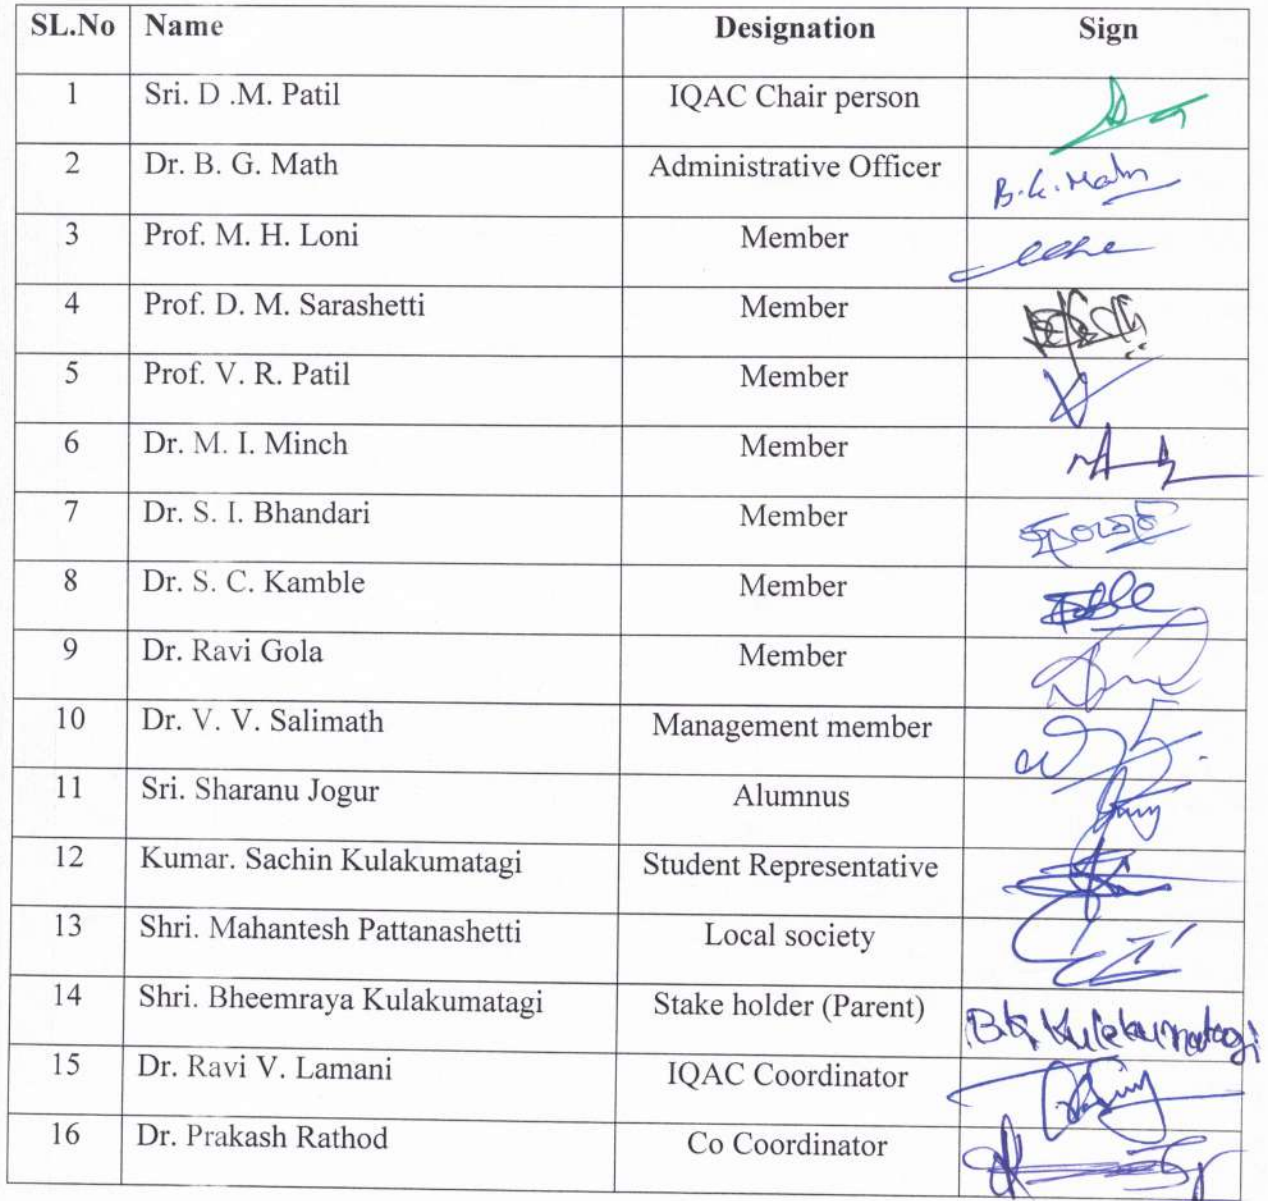 SL.No Name Designation Sign
1 Sri. D .M. Patil IQAC Chair person
2 Dr. B. G. Math Administrative Officer B.G.Math
3 Prof. M. H. Loni Member
4 Prof. D. M. Sarashetti Member
5 Prof. V. R. Patil Member
6 Dr. M. I. Minch Member
7 Dr. S. I. Bhandari Member
8 Dr. S. C. Kamble Member
9 Dr. Ravi Gola Member
10 Dr. V. V. Salimath Management member
11 Sri. Sharanu Jogur Alumnus
12 Kumar. Sachin Kulakumatagi Student Representative
13 Shri. Mahantesh Pattanashetti Local society
14 Shri. Bheemraya Kulakumatagi Stake holder (Parent) B.K Kulakumatagi
15 Dr. Ravi V. Lamani IQAC Coordinator
16 Dr. Prakash Rathod Co Coordinator